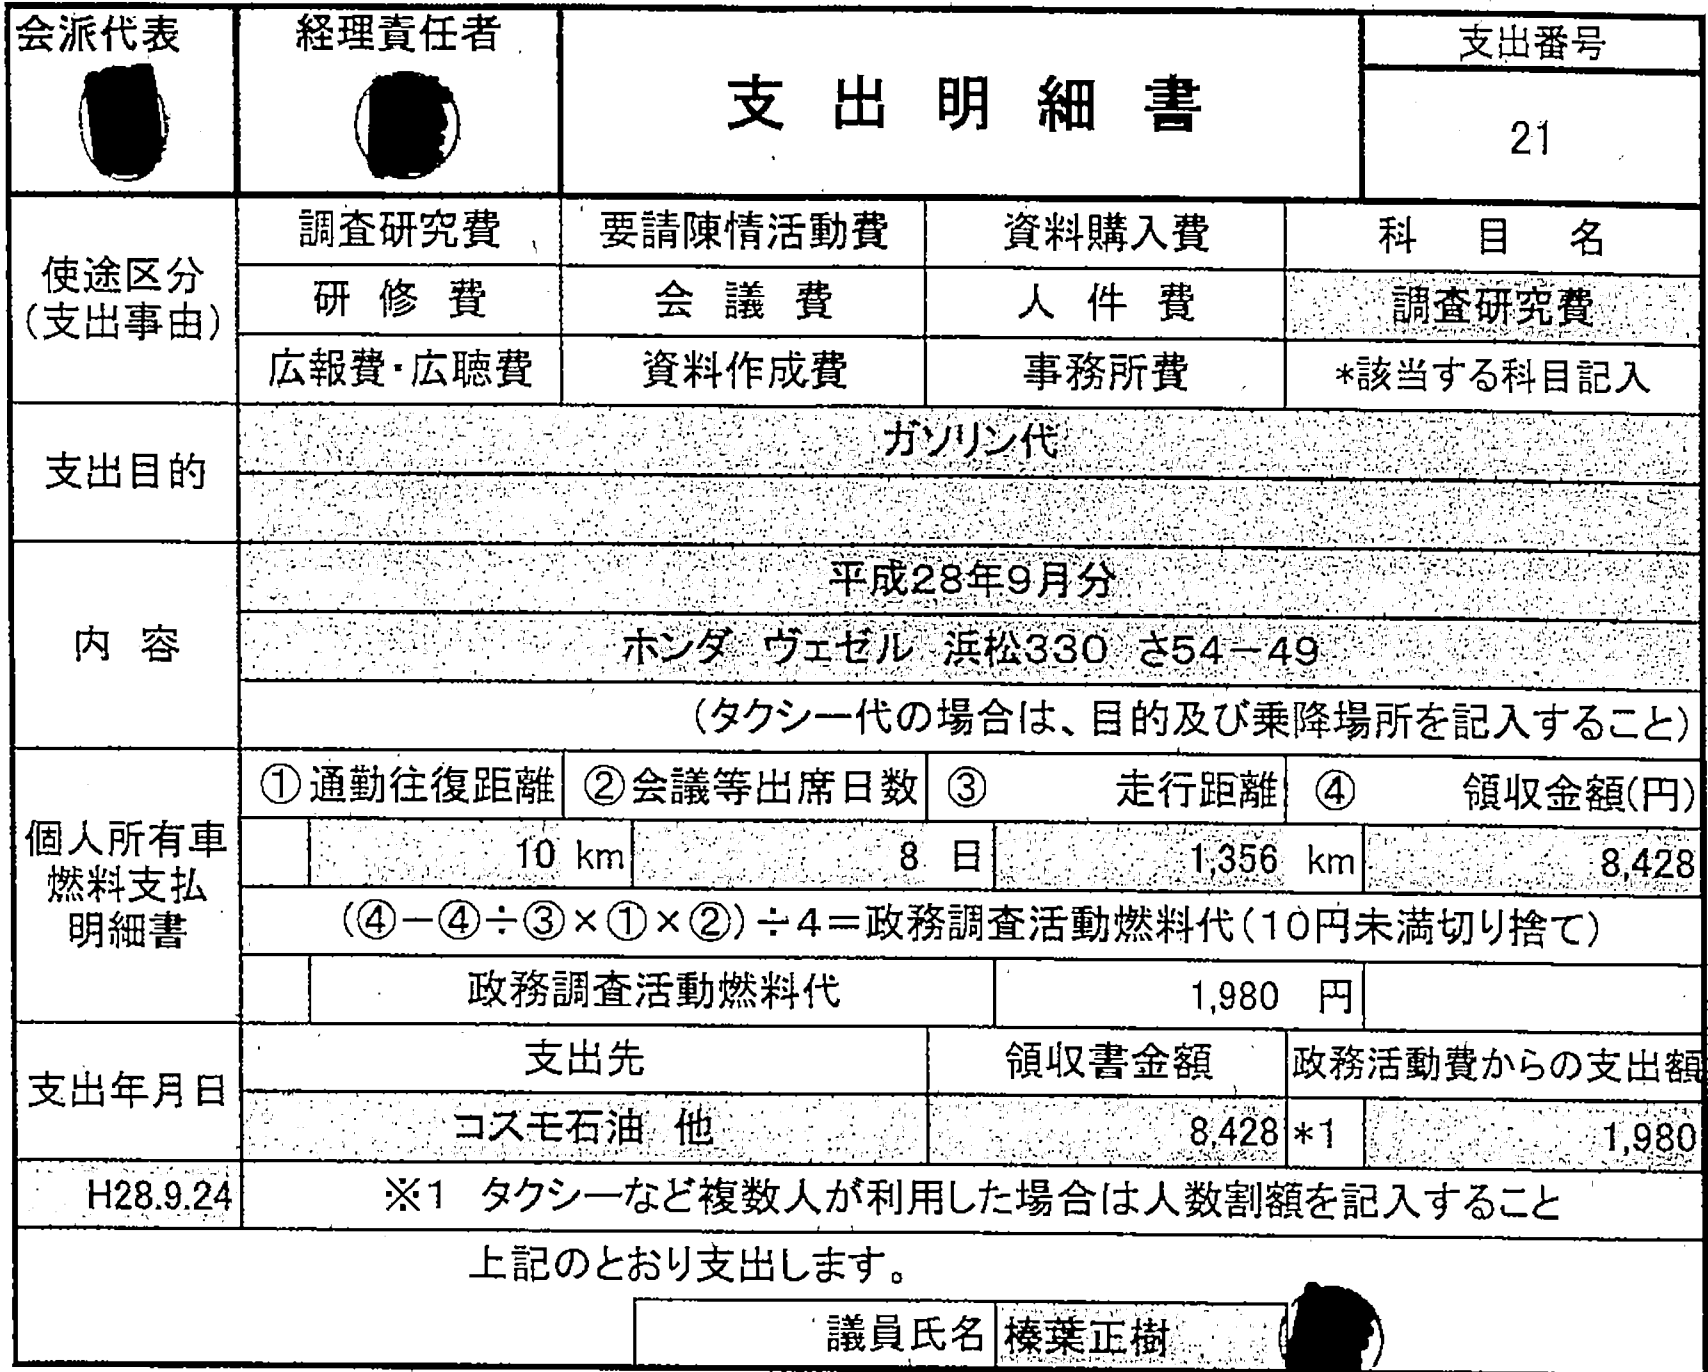 会派代表 経理責任者 支出明細書 支出番号
21
使途区分(支出事由) 調査研究費 要請陳情活動費 資料購入費 科目名
研修費 会議費 人件費 調査研究費
広報費・広聴費 資料作成費 事務所費 *該当する科目記入
支出目的 ガソリン代
内容 平成28年9月分
ホンダ ヴェゼル 浜松330 さ54-49
(タクシー代の場合は、目的及び乗降場所を記入すること)
個人所有車燃料支払明細書 ①通勤往復距離 ②会議等出席日数 ③ 走行距離 ④ 領収金額(円)
10 km 8 日 1,356 km 8,428
(④-④÷③×①×②)÷4=政務調査活動燃料代(10円未満切り捨て)
政務調査活動燃料代 1,980 円
支出年月日 支出先 領収書金額 政務活動費からの支出額
コスモ石油 他 8,428 *1 1,980
H28.9.24 ※1 タクシーなど複数人が利用した場合は人数割額を記入すること
上記のとおり支出します。
議員氏名 榛葉正樹